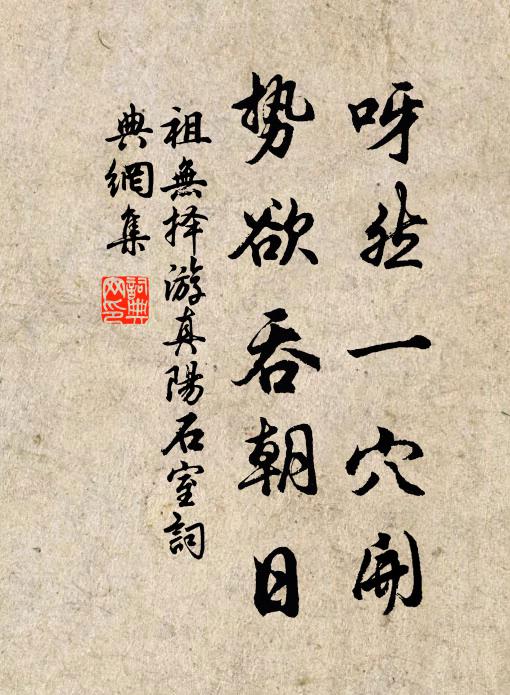 呀然一穴開
勢欲吞朝日
祖無择游真陽石室詞
典網集
詞典網印